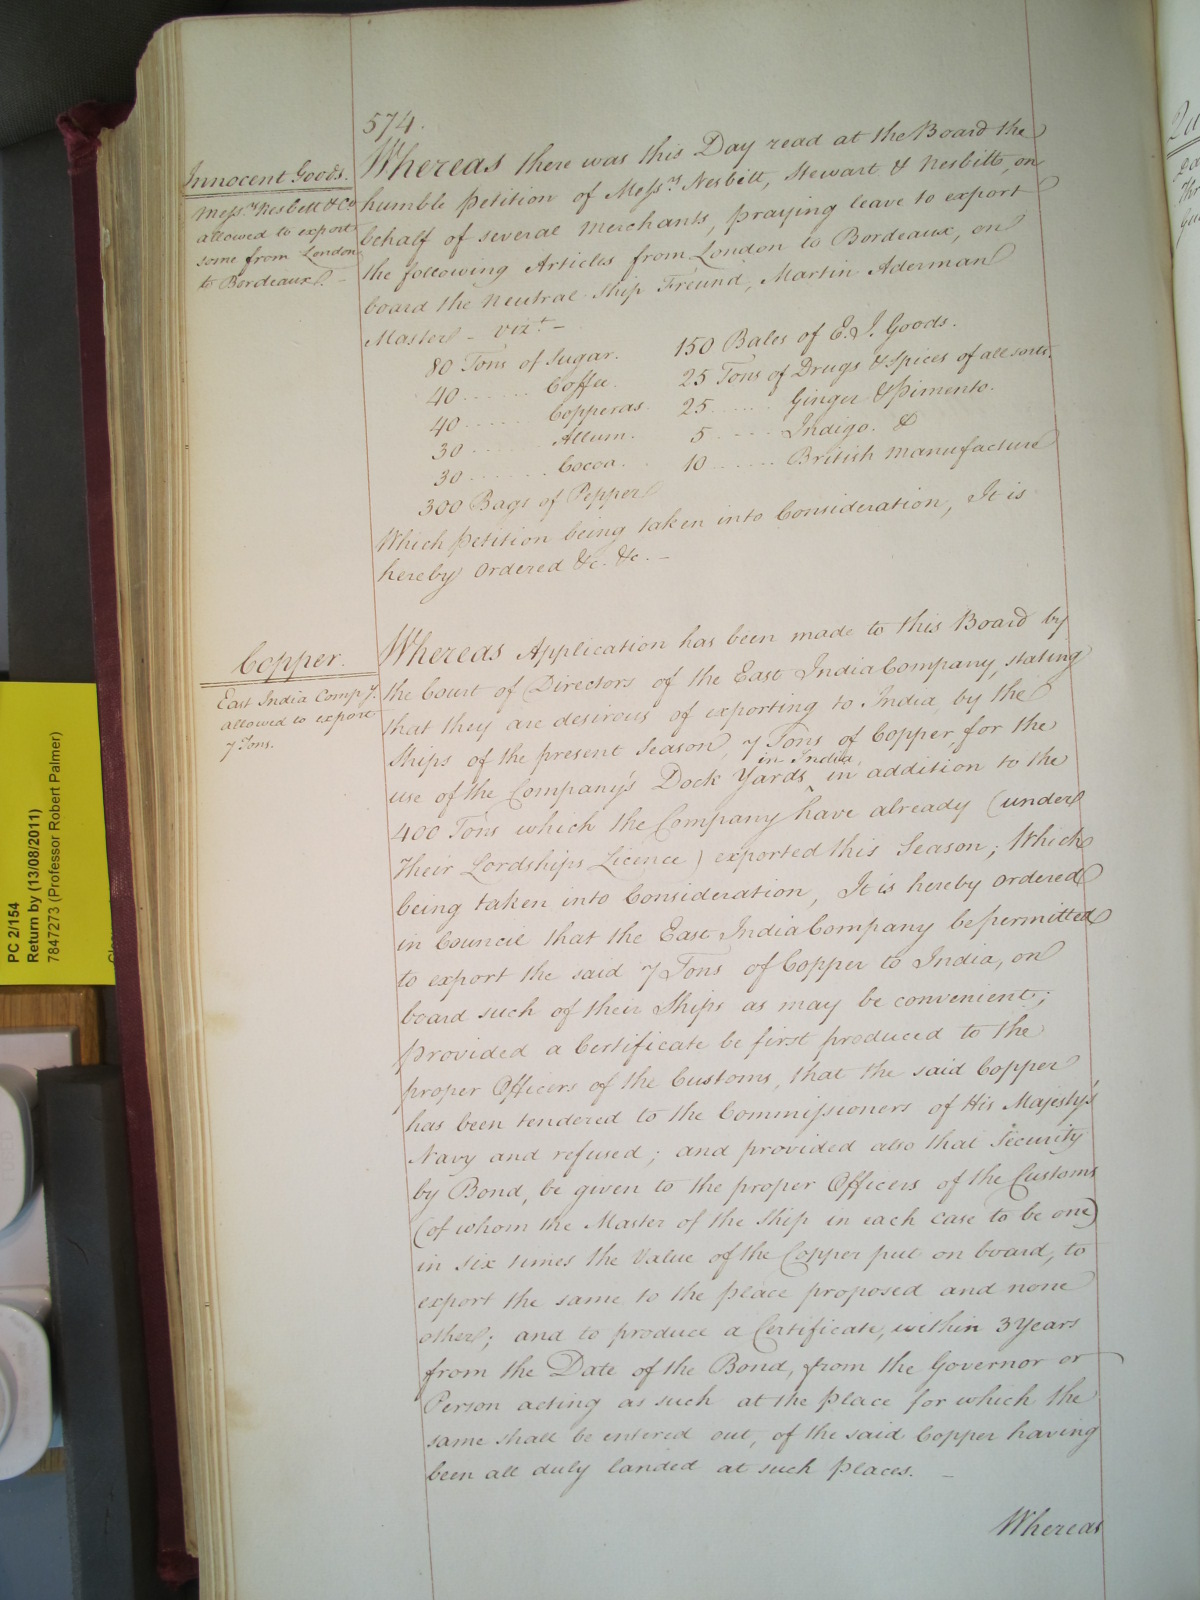 574.
Innocent Goods.
Mess.rs Nesbett & Co
allowed to export
some from London
to Bordeaux. -
Whereas there was this Day read at the Board the
humble Petition of Mess.rs Nesbitt, Stewart & Nesbitt, on
behalf of several Merchants, praying leave to export
the following Articles from London to Bordeaux, on
board the Neutral Ship Freund, Martin Aderman
Master - viz.t -
80 Tons of Sugar. 150 Bales of E. I. Goods.
40 ...... Coffee. 25 Tons of Drugs & Spices of all sorts.
40 ...... Copperas. 25 ...... Ginger & Pimento.
30 ...... Allum. 5 ...... Indigo. &
30 ...... Cocoa. 10 ...... British Manufacture
300 Bags of Pepper
Which Petition being taken into Consideration, It is
hereby Ordered &c. &c. -
Copper.
East India Comp.y
allowed to export
7 Tons.
Whereas Application has been made to this Board by
the Court of Directors of the East India Company, stating
that they are desirous of exporting to India, by the
Ships of the present Season, 7 Tons of Copper, for the
in India,
use of the Company's Dock Yards ^ in addition to the
400 Tons which the Company have already (under
Their Lordships Licence) exported this Season; Which
being taken into Consideration, It is hereby Ordered
in Council that the East India Company be permitted
to export the said 7 Tons of Copper to India, on
board such of their Ships as may be convenient;
provided a Certificate be first produced to the
proper Officers of the Customs, that the said Copper
has been tendered to the Commissioners of His Majesty's
Navy and refused; and provided also that Security
by Bond, be given to the proper Officers of the Customs
(of whom the Master of the Ship in each case to be one)
in six times the Value of the Copper put on board, to
export the same to the place proposed and none
other; and to produce a Certificate, within 3 Years
from the Date of the Bond, from the Governor or
Person acting as such at the Place for which the
same shall be entered out, of the said Copper having
been all duly landed at such Places. -
Whereas
PC 2/154
Return by (13/08/2011)
7847273 (Professor Robert Palmer)